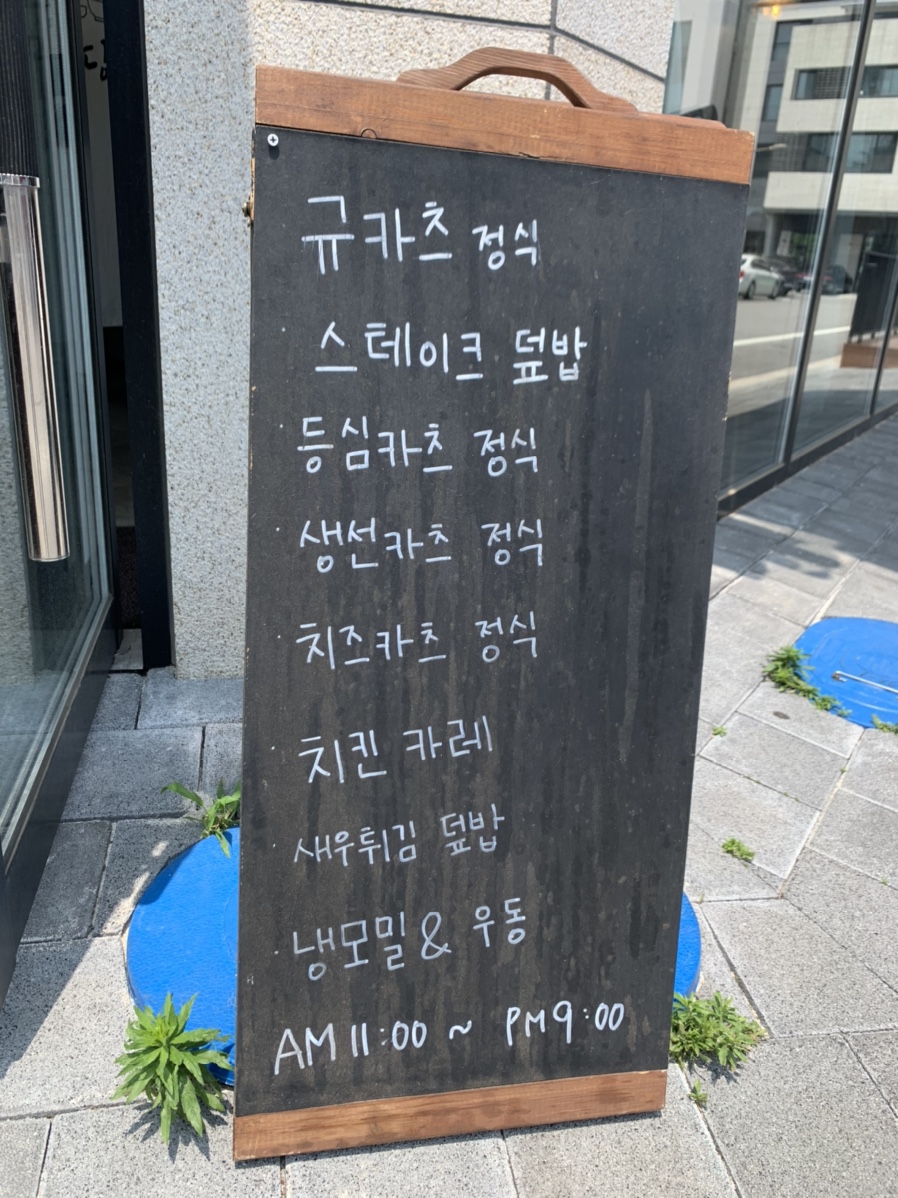 규카츠 정식
스테이크 덮밥
등심카츠 정식
생선카츠 정식
치즈카츠 정식
치킨 카레
새우튀김 덮밥
냉모밀 & 우동
AM 11:00 ~ PM 9:00